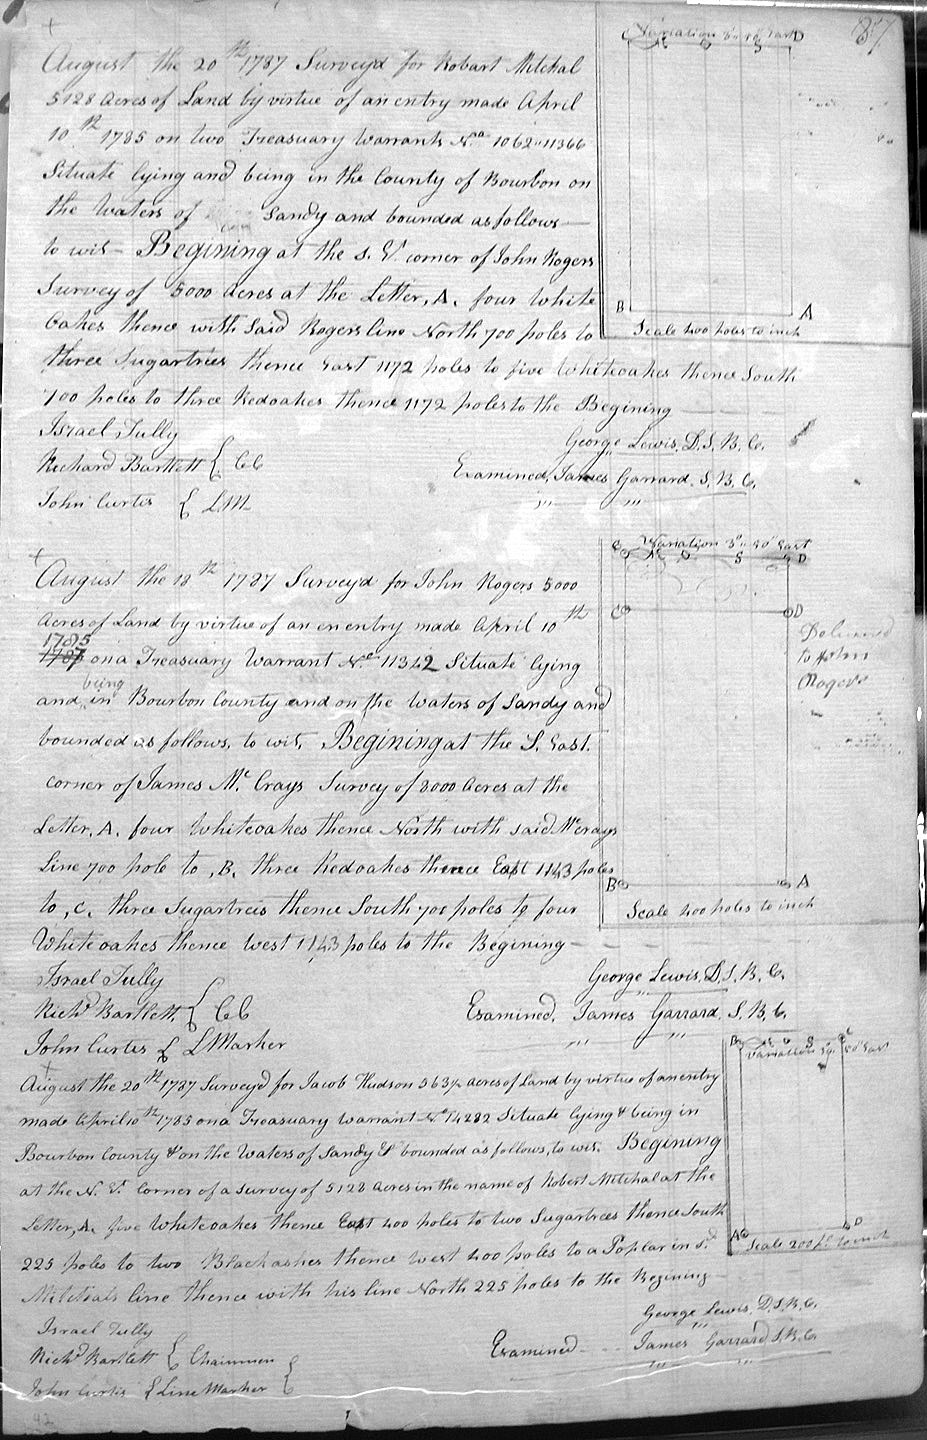 87
August the 20th 1787 Surveyd for Robart Mitchal
5128 Acres of Land by virtue of an entry made April
10th 1785 on two Treasuary Warrants No 1062 11366
Situate lying and being in the County of Bourbon on
the Waters of Sandy and bounded as follows
to wit Begining at the S. Et corner of John Rogers
Survey of 5000 acres at the Letter, A. four White
Oakes thence with Said Rogers line North 700 poles to
three Sugartrees thence East 1172 poles to five Whiteoakes thence South
700 poles to three Redoakes thence 1172 poles to the Begining
Israel Tully
Richard Bartlett { CC
John Curtis { LM
George Lewis, D.S.B.C.
Examined, James Garrard. S.B.C.
Variation East D
B A
Scale 400 poles to inch
August the 18th 1787 Surveyd for John Rogers 5000
Acres of Land by virtue of an entry made April 10th
1785
1787 on a Treasuary Warrant No 11342 Situate lying
being
and in Bourbon County and on the Waters of Sandy and
bounded as follows, to wit, Begining at the S. East.
corner of James Mc Crays Survey of 8000 Acres at the
Letter, A. four Whiteoakes thence North with said Mccrays
Line 700 pole to ,B. three Redoakes thence East 1143 poles
to ,C. three Sugartrees thence South 700 poles to four
Whiteoakes thence West 1143 poles to the Begining
Israel Tully
Richd Bartlett { CC
John Curtis { LMarker
George Lewis, D.S.B.C.
Examined. James Garrard. S.B.C.
Variation 3° 50' East
D
C D
B A
Scale 400 poles to inch
Delivered
to John
Rogers
August the 20th 1787 Surveyd for Jacob Hudson 563½ acres of Land by virtue of an entry
made April 10th 1785 on a Treasuary Warrant No 14282 Situate lying & being in
Bourbon County & on the Waters of Sandy & bounded as follows, to wit. Begining
at the N. Et. Corner of a Survey of 5128 Acres in the name of Robert Mitchal at the
Letter, A. five Whiteoakes thence East 400 poles to two Sugartrees thence South
225 poles to two Blackashes thence West 400 poles to a Poplar in sd
Mitchals line thence with his line North 225 poles to the Begining
Israel Tully
Richd Bartlett { Chainmen
John Curtis { Line Marker
George Lewis, D.S.B.C.
Examined James Garrard S.B.C.
B C
Variation 3° 50' East
A D
Scale 200 ps to inch